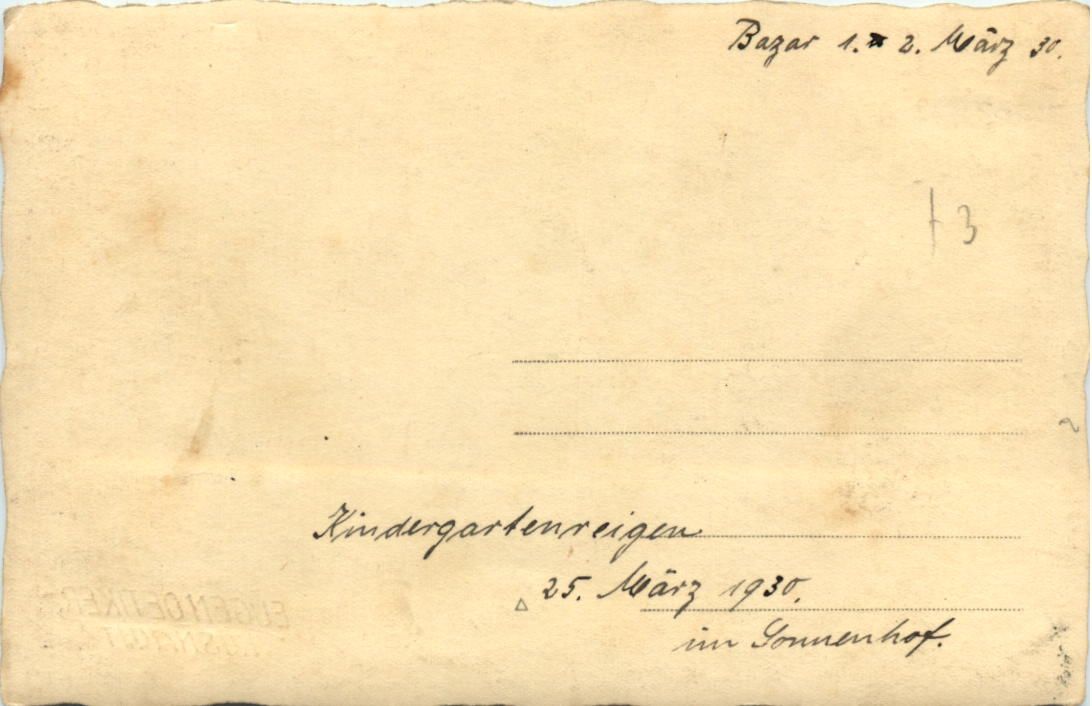 Bazar 1. 2. März 30.
+3
2
Kindergartenreigen
25. März 1930.
im Sonnenhof.
EUGEN OETIKER